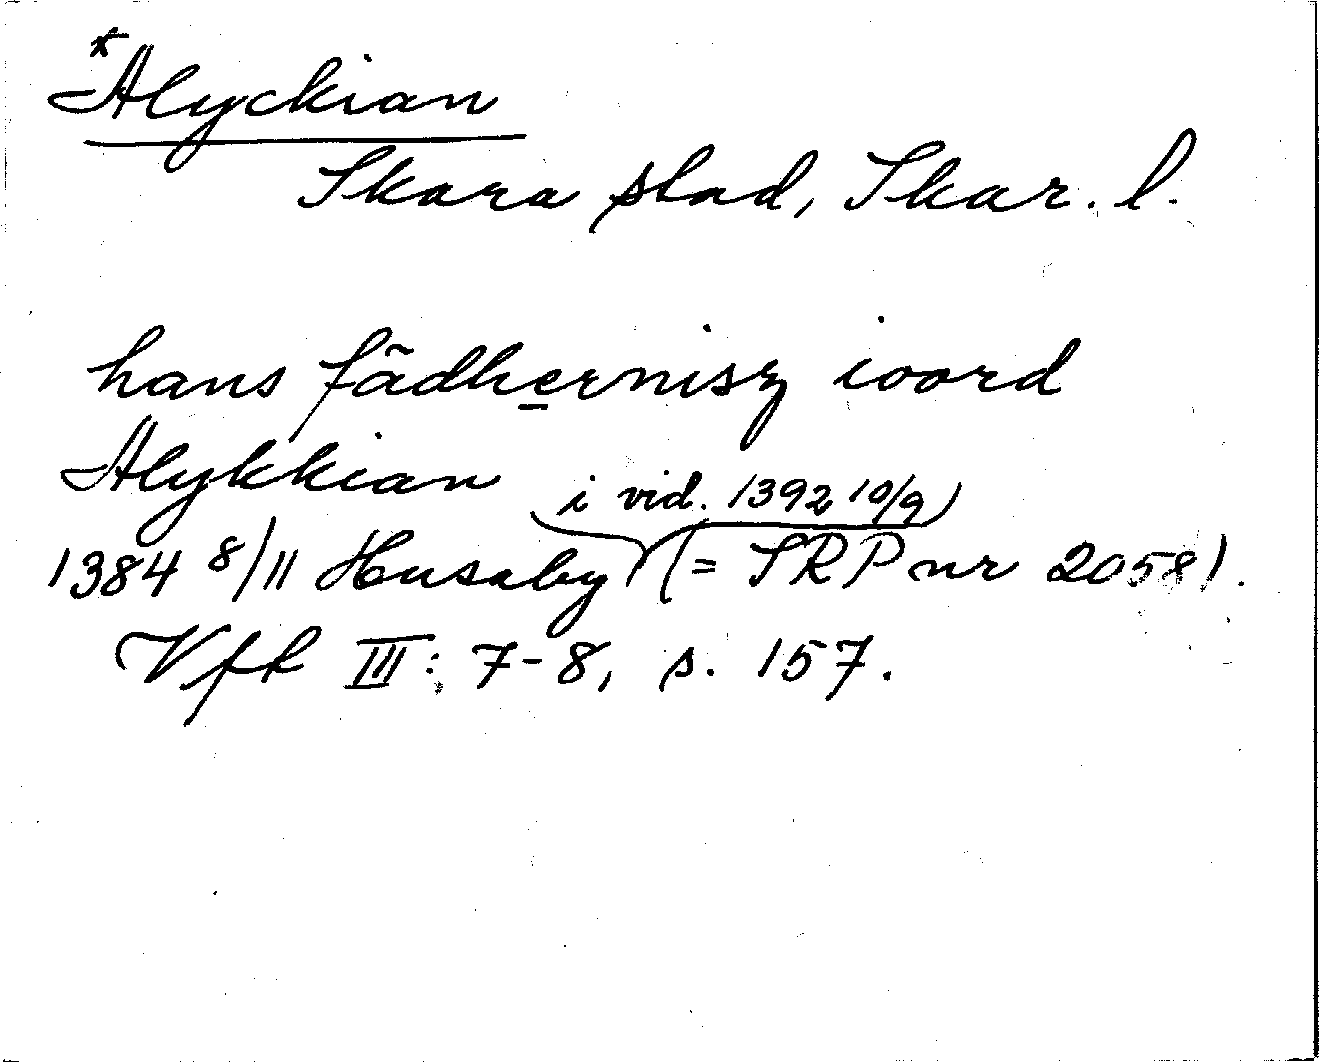 *Alyckian
Skara stad, Skar. l.
hans fādhernisz ioord
Alykkian
i vid. 1392 10/9)
1384 8/11 Husaby (= SRP nr 2058).
Vfk III: 7-8, s. 157.